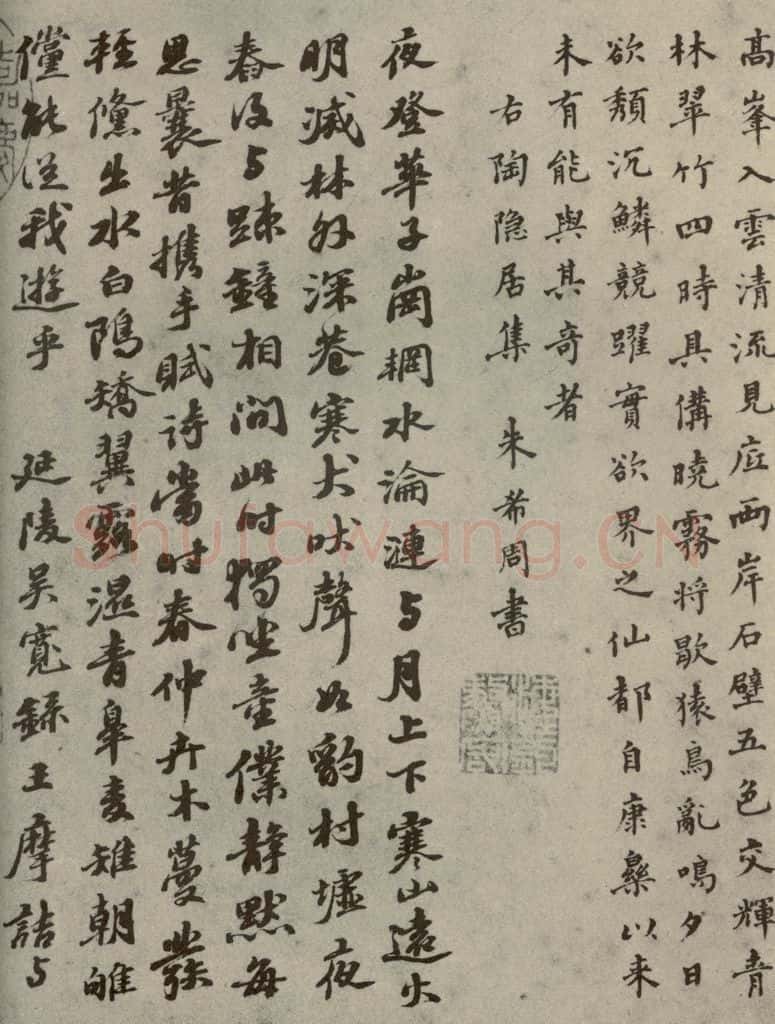 高峯入雲清流見底兩岸石壁五色交輝青
林翠竹四時具備曉霧将歇猿鳥亂鳴夕日
欲頽沉鱗競躍實欲界之仙都自康樂以来
未有能與其奇者
右陶隐居集 朱希周書
夜登華子崗輞水淪漣与月上下寒山遠火
明滅林外深巷寒犬吠聲如豹村墟夜
舂復与踈鐘相間此时獨坐童僕静默每
思曩昔携手賦诗當时春仲卉木蔓發
輕鯈出水白鷗矯翼露濕青皋麦雉朝雊
儻能従我遊乎 延陵吴寬録王摩詰与
Shufawang.CN